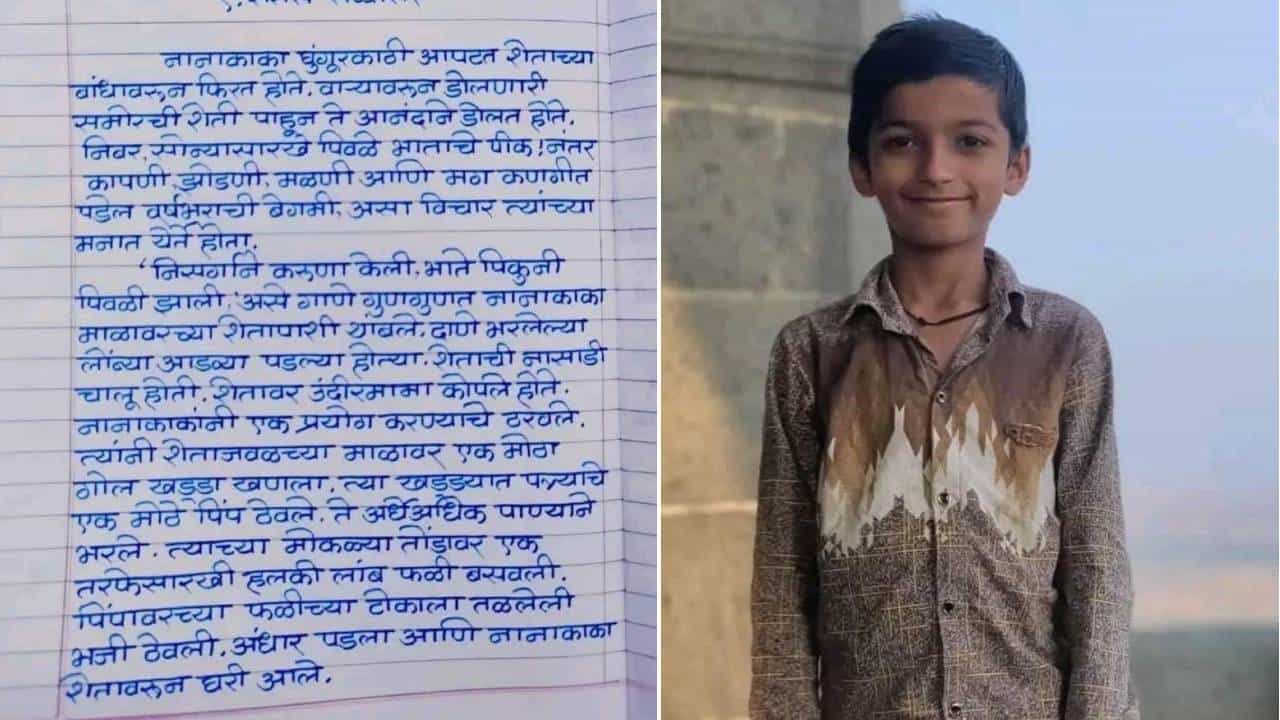 नानाकाका घुंगूरकाठी आपटत शेताच्या
बांधावरून फिरत होते. वाऱ्यावरून डोलणारी
समोरची शेती पाहून ते आनंदाने डोलत होते.
निवर, सोन्यासारखे पिवळे भाताचे पीक! नंतर
कापणी, झोडणी, मळणी आणि मग कणगीत
पडेल वर्षभराची बेगमी, असा विचार त्यांच्या
मनात येत होता.
'निसर्गाने करुणा केली, भाते पिकुनी
पिवळी झाली,' असे गाणे गुणगुणत नानाकाका
माळावरच्या शेतापाशी थांबले. दाणे भरलेल्या
लोंब्या आडव्या पडल्या होत्या. शेताची नासाडी
चालू होती. शेतावर उंदीरमामा कोपले होते.
नानाकाकांनी एक प्रयोग करण्याचे ठरवले.
त्यांनी शेताजवळच्या माळावर एक मोठा
गोल खड्डा खणला. त्या खड्ड्यात पत्र्याचे
एक मोठे पिंप ठेवले. ते अर्धेअधिक पाण्याने
भरले. त्याच्या मोकळ्या तोंडावर एक
तरफेसारखी हलकी लांब फळी बसवली.
पिंपावरच्या फळीच्या टोकाला तळलेली
भजी ठेवली. अंधार पडला आणि नानाकाका
शेतावरून घरी आले.